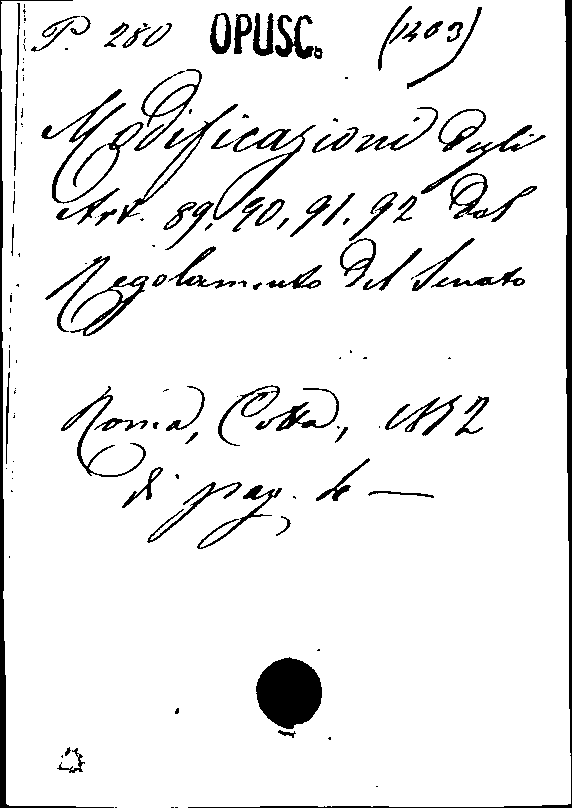 P. 280 OPUSC. (1403)
Modificazioni degli
Art. 89, 90, 91, 92 del
Regolamento del Senato
Roma, Cotta,
di pag. 4 —